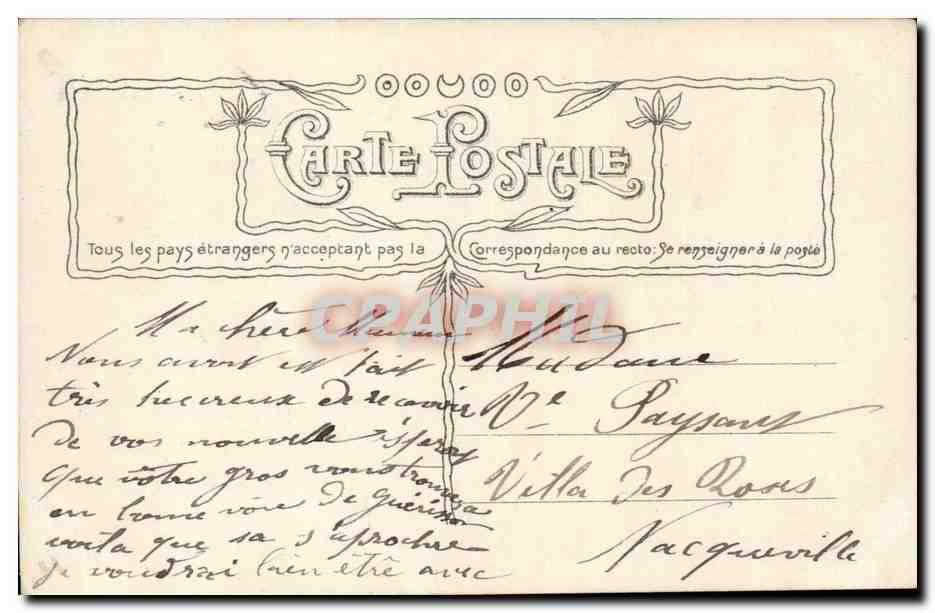 CARTE POSTALE
Tous les pays étrangers n'acceptant pas la Correspondance au recto: Se renseigner à la poste
CPAPHIL
Ma chère
Nous avont est fait
très heureux de recevoir
de vos nouvelle
que vôtre gros
en bonne voie de guérison
voila que sa s'aproche
je voudrai bien être avec
Madame
Ve Paysant
Villa des Roses
Nacqueville